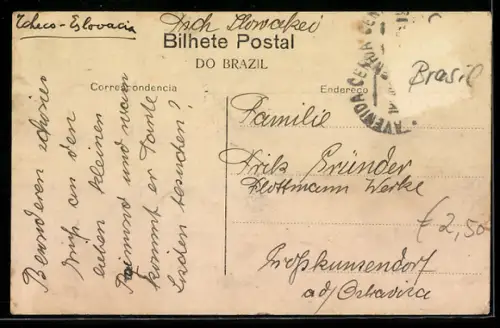 Tcheco-Eslovacia
Tsch Slowakei
Bilhete Postal
DO BRAZIL
Correspondencia
Endereço
AVENIDA CE
Brasil
Besonderen schönen
Gruß an den
lieben kleinen
Raimund und wann
kommt er Tante
besuchen?
Familie
Fritz Gründer
Flottmann Werke
Großkunzendorf
a/d
€ 2,50